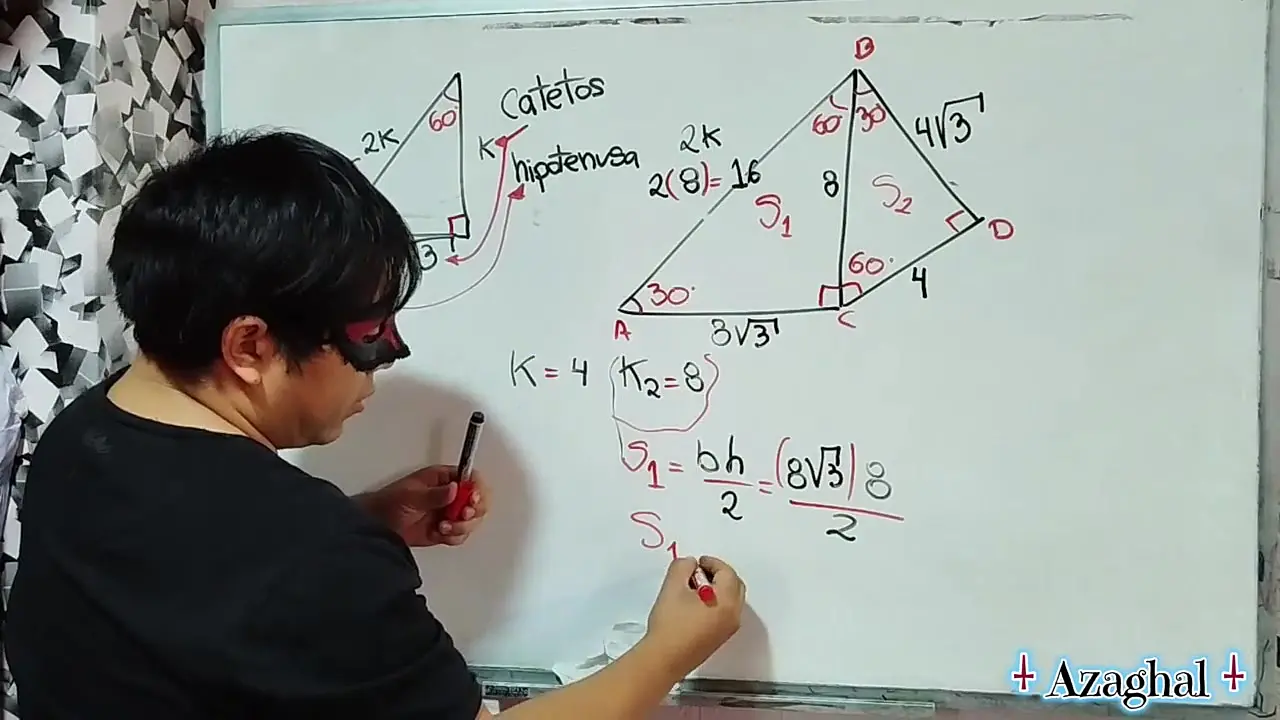 Catetos
hipotenusa
2K
60
K
3
B
60 30
4√3
2K
2(8)=16
8
S1
S2
D
60°
4
30°
A
8√3
C
K=4 (K2=8)
S1 = bh/2 = (8√3)8/2
S1
† Azaghal †